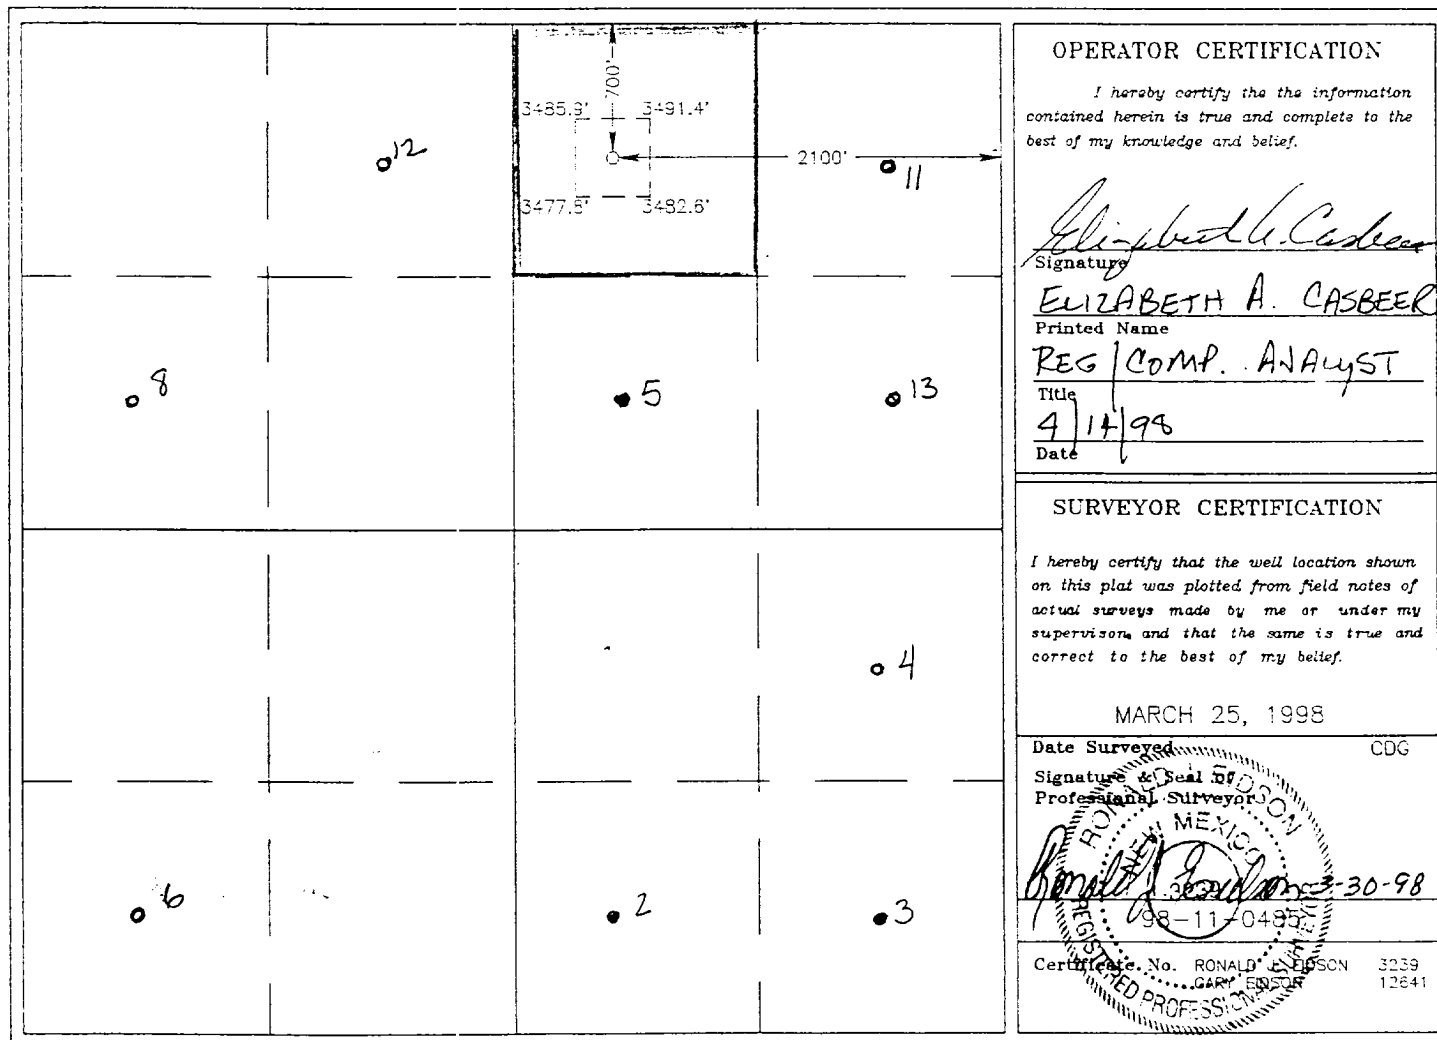 700'
3485.9'
3491.4'
2100'
3477.8'
3482.6'
12
11
8
5
13
4
6
2
3
OPERATOR CERTIFICATION
I hereby certify the the information
contained herein is true and complete to the
best of my knowledge and belief.
Elizabeth A. Casbeer
Signature
ELIZABETH A. CASBEER
Printed Name
REG / COMP. ANALYST
Title
4/14/98
Date
SURVEYOR CERTIFICATION
I hereby certify that the well location shown
on this plat was plotted from field notes of
actual surveys made by me or under my
supervison, and that the same is true and
correct to the best of my belief.
MARCH 25, 1998
Date Surveyed CDG
Signature & Seal of
Professional Surveyor
RONALD J EIDSON
NEW MEXICO
3239
REGISTERED PROFESSIONAL SURVEYOR
Ronald J Eidson 3-30-98
98-11-0485
Certificate No. RONALD J EIDSON 3239
GARY EIDSON 12641